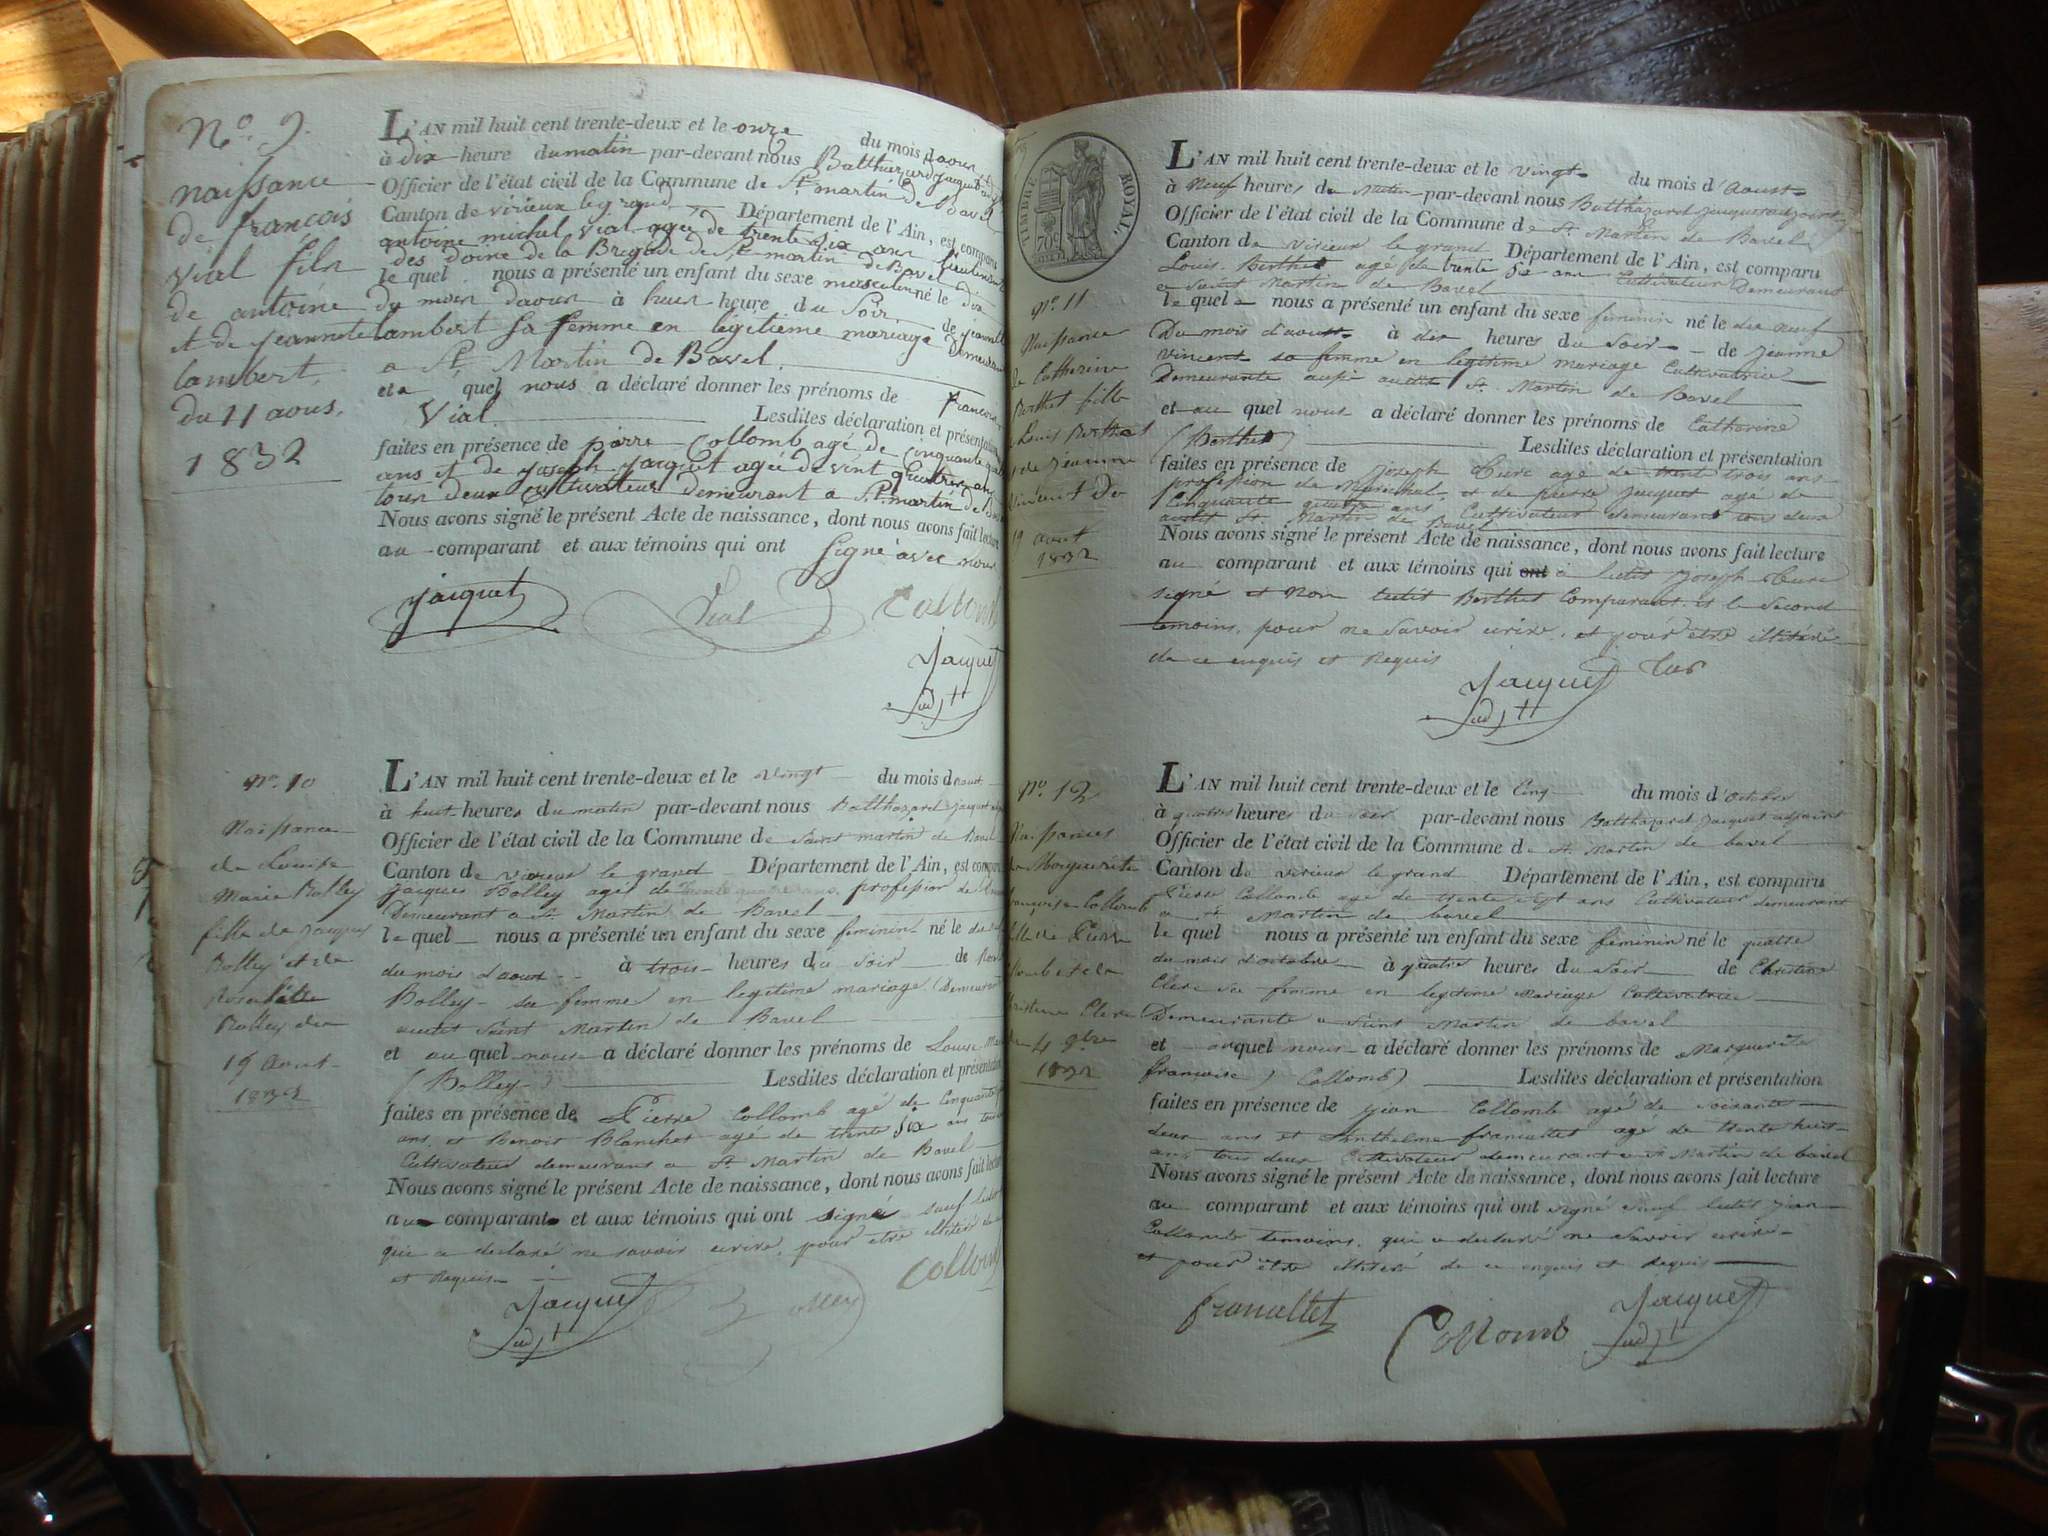 N° 9.
naissance
de françois
vial fils
de antoine
et de jeannete
lambert,
du 11 aous,
1832
L'AN mil huit cent trente-deux et le onze du mois daous
à dix heure du matin par-devant nous Balthazard jacquet
Officier de l'état civil de la Commune de St martin de Bavel
Canton de virieux le grand Département de l'Ain, est comparu
antoine michel vial agée de trente six ans lieutenant
des doine de la Brigade de St martin de Bavel
le quel nous a présenté un enfant du sexe masculin né le dix
du mois daous à huit heure du Soir de jeannette
lambert sa femme en légitieme mariage Demeurant
a St Martin de Bavel.
et a quel nous a déclaré donner les prénoms de francois
Vial Lesdites déclaration et présentation
faites en présence de pierre Collomb agé de cinquante quatre
ans et de joseph jacquet agée de vint quatre ans
tous deux cultivateur demeurant a St martin de Bavel
Nous avons signé le présent Acte de naissance, dont nous avons fait lecture
au comparant et aux témoins qui ont signé avec nous
jacquet Vial Collomb
Jacquet
adjt
N°. 10
Naissance
de Louise
Marie Bolley
fille de jacques
Bolley et de
Bolley du
19 Aout
1832
L'AN mil huit cent trente-deux et le vingt du mois daout
à huit heures du matin par-devant nous Balthazard jacquet adjoint
Officier de l'état civil de la Commune de Saint martin de Bavel
Canton de virieux le grand Département de l'Ain, est comparu
jacques Bolley agé de profession de
Demeurant a St Martin de Bavel
le quel nous a présenté un enfant du sexe feminin né le
du mois daout à trois heures du soir de
Bolley sa femme en legitime mariage Demeurant
audit Saint Martin de Bavel
et au quel nous a déclaré donner les prénoms de Louise Marie
(Bolley) Lesdites déclaration et présentation
faites en présence de Pierre Collomb agé de Cinquante
ans, et Benoit Blanchet agé de trente six ans tous
Cultivateur demeurant a St Martin de Bavel
Nous avons signé le présent Acte de naissance, dont nous avons fait lecture
au comparant et aux témoins qui ont signé sauf
qui a déclaré ne savoir écrire, pour etre illitéré
et Requis
Jacquet Bolley Collomb
adjt
TIMBRE ROYAL
70c
N°. 11
Naissance
de Catherine
Berthet fille
Louis Berthet
de jeanne
Vincent Du
19 aout
1832
L'AN mil huit cent trente-deux et le vingt du mois d'Aoust
à Neuf heures du Matin par-devant nous Balthazard jacquet adjoint
Officier de l'état civil de la Commune de St Martin de Bavel
Canton de virieux le grand Département de l'Ain, est comparu
Louis Berthet agé de trente six ans Cultivateur Demeurant
a Saint Martin de Bavel
le quel nous a présenté un enfant du sexe feminin né le dix neuf
Du mois d'aoust à dix heures du Soir de jeanne
vincent sa femme en legitime mariage Cultivatrice
Demeurante aussi audit St Martin de Bavel
et au quel nous a déclaré donner les prénoms de Catherine
(Berthet) Lesdites déclaration et présentation
faites en présence de joseph Cure agé de trent trois ans
profession de Marechal, et de pierre jacquet agé de
Cinquante quatre ans Cultivateur demeurant tous deux
audit St Martin de Bavel
Nous avons signé le présent Acte de naissance, dont nous avons fait lecture
au comparant et aux témoins qui ont a ledit joseph Cure
signé et Non ledit Berthet Comparant et le Second
temoins, pour ne Savoir ecrire, et pour être illitéré
de ce enquis et Requis
Jacquet Cure
adjt
N°. 12
Naissance
de Marguerite
françoise Collomb
fille de Pierre
Collomb et de
Christine Clere
du 4 8bre
1832
L'AN mil huit cent trente-deux et le Cinq du mois d'octobre
à quatre heures du soir par-devant nous Balthazard jacquet adjoint
Officier de l'état civil de la Commune de St Martin de bavel
Canton de virieux le grand Département de l'Ain, est comparu
Pierre Collomb agé de trente sept ans Cultivateur demeurant
a St Martin de bavel
le quel nous a présenté un enfant du sexe féminin né le quatre
du mois d'octobre à quatre heures du Soir de Christine
Clere sa femme en legitime Mariage Cultivatrice
Demeurante a Saint Martin de bavel
et auquel nous a déclaré donner les prénoms de Marguerite
francoise) Collomb) Lesdites déclaration et présentation
faites en présence de jean Collomb agé de soixante
deux ans et Anthelme francillet agé de trente huit
ans tous deux Cultivateur demeurant a St Martin de bavel
Nous avons signé le présent Acte de naissance, dont nous avons fait lecture
au comparant et aux témoins qui ont signé sauf ledit jean
Collomb temoins, qui a declaré ne savoir ecrire
et pour être illitéré de ce enquis et Requis
francillet Collomb Jacquet
adjt